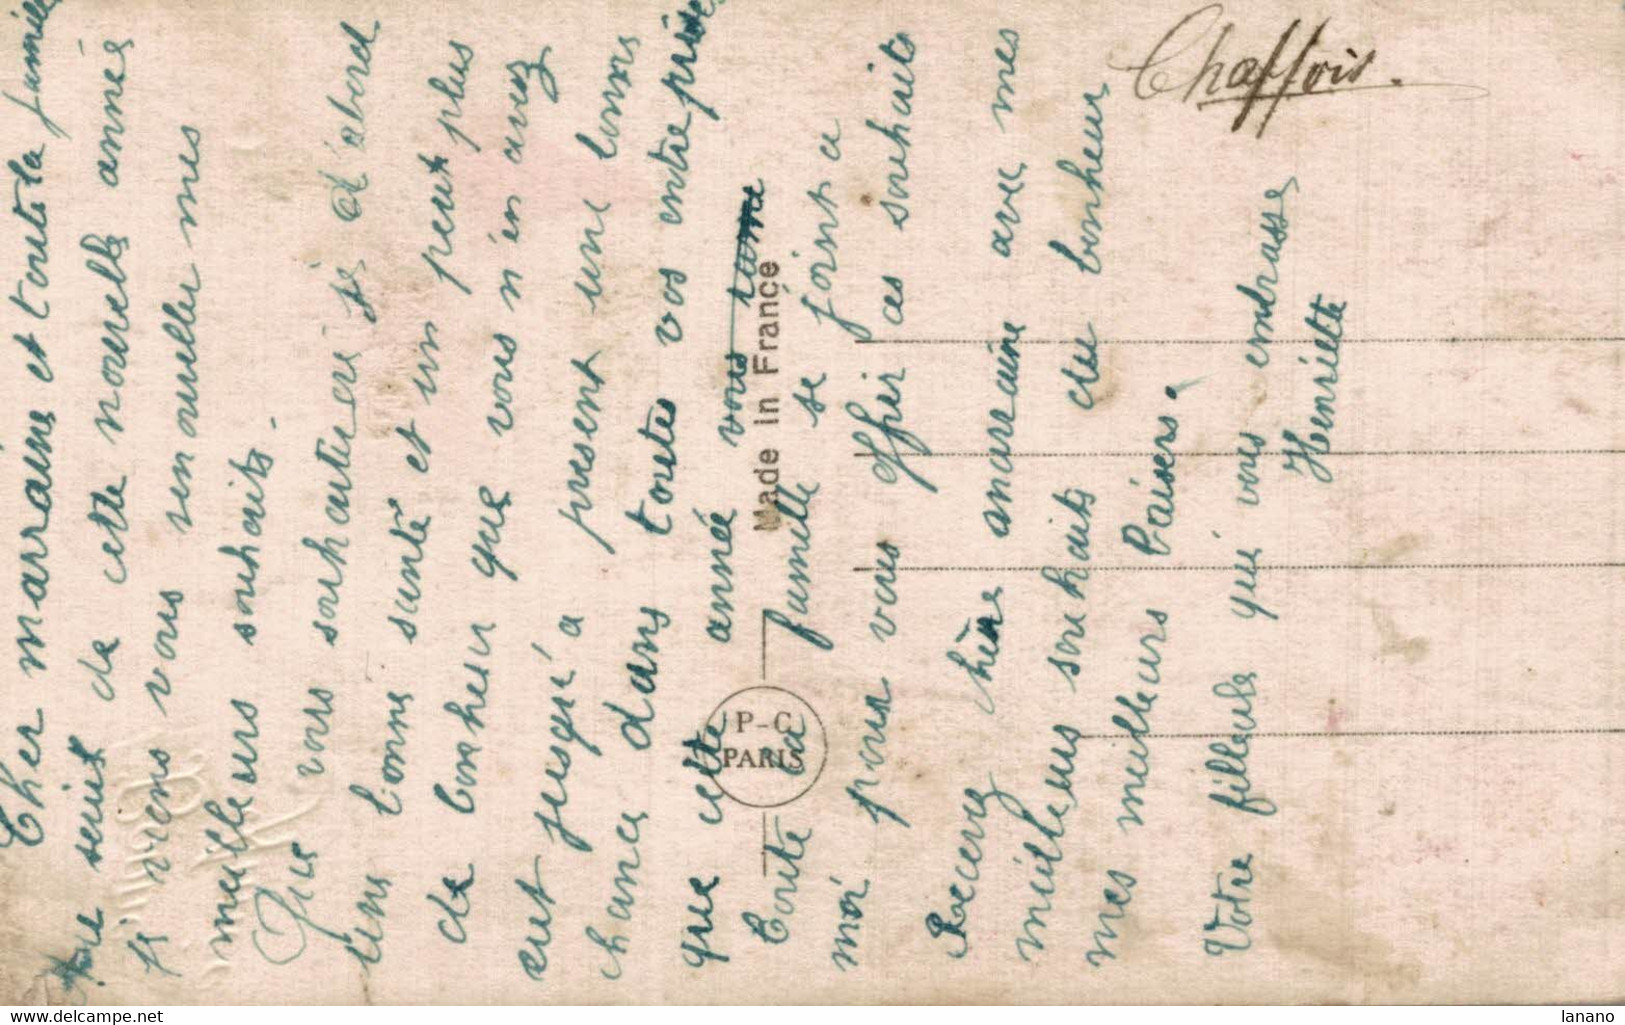 Cher marraine et toute la famille
seuil de cette nouvelle année
je viens vous renouveller mes
meilleurs souhaits.
Que vous souhaiterai je d'abord
une bonne santé et un peut plus
de bonheur que vous n'en avez
eut jusqu'à present une bonne
chance dans toutes vos entreprises
que cette année vous
Toute la famille se joint a
moi pour vous offrir ces souhaits
Recevez chère marraine avec mes
meilleurs souhaits de bonheur
mes meilleurs baisers.
Votre filleule qui vous embrasse
Henriette
Chaffois.
Made in France
P-C
PARIS
www.delcampe.net
lanano